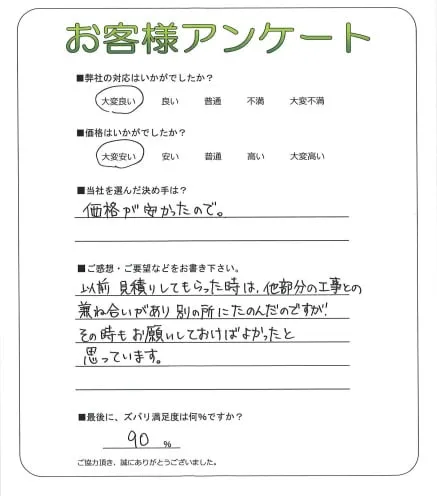 お客様アンケート
■弊社の対応はいかがでしたか?
大変良い 良い 普通 不満 大変不満
■価格はいかがでしたか?
大変安い 安い 普通 高い 大変高い
■当社を選んだ決め手は?
価格が安かったので。
■ご感想・ご要望などをお書き下さい。
以前見積りしてもらった時は、他部分の工事との
兼ね合いがあり別の所にたのんだのですが
その時もお願いしておけばよかったと
思っています。
■最後に、ズバリ満足度は何%ですか?
90 %
ご協力頂き、誠にありがとうございました。